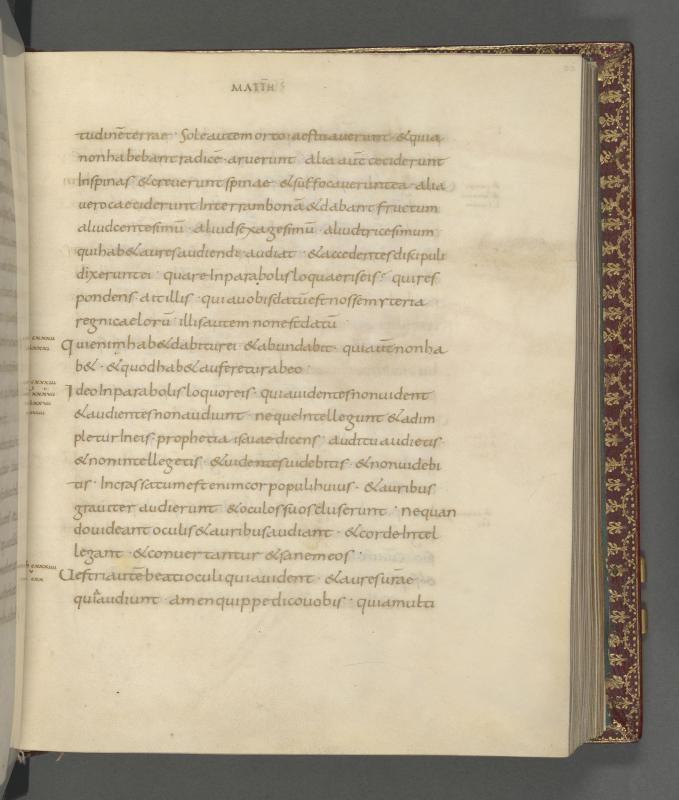 MATTH
tudinē terrae · Sole autem orto aestuaverunt · & quia
non habebant radicē · aruerunt · alia aut̄ ceciderunt
In spinas · & creverunt spinae · & suffocaverunt ea · alia
vero ceciderunt In terram bonā & dabant fructum
aliud centesimū · aliud sexagesimū · aliud tricesimum
qui hab& aures audiendi audiat · & accedentes discipuli
dixerunt ei · quare In parabolis loquaeris eis · qui res
pondens ait illis · quia uobis datū est nosse mysteria
regni caelorū · illis autem non est datū ·
Qui enim hab& dabitur ei & abundabit · qui aut̄ non ha
b& · & quod hab& auferetur ab eo ·
Ideo In parabolis loquor eis · quia uidentes non uident
& audientes non audiunt · neque Intellegunt & adim
pletur In eis · prophetia isaiae dicens · auditu audietis
& non intellegetis · & uidentes uidebitis · & non uidebi
tis · Incrassatum est enim cor populi huius · & auribus
graviter audierunt · & oculos suos cluserunt · ne quan
do uideant oculis & auribus audiant · & corde Intel
legant · & convertantur & sanem eos ·
Uestri autē beati oculi quia uident · & aures urāe
quia audiunt · amen quippe dico uobis · quia multi